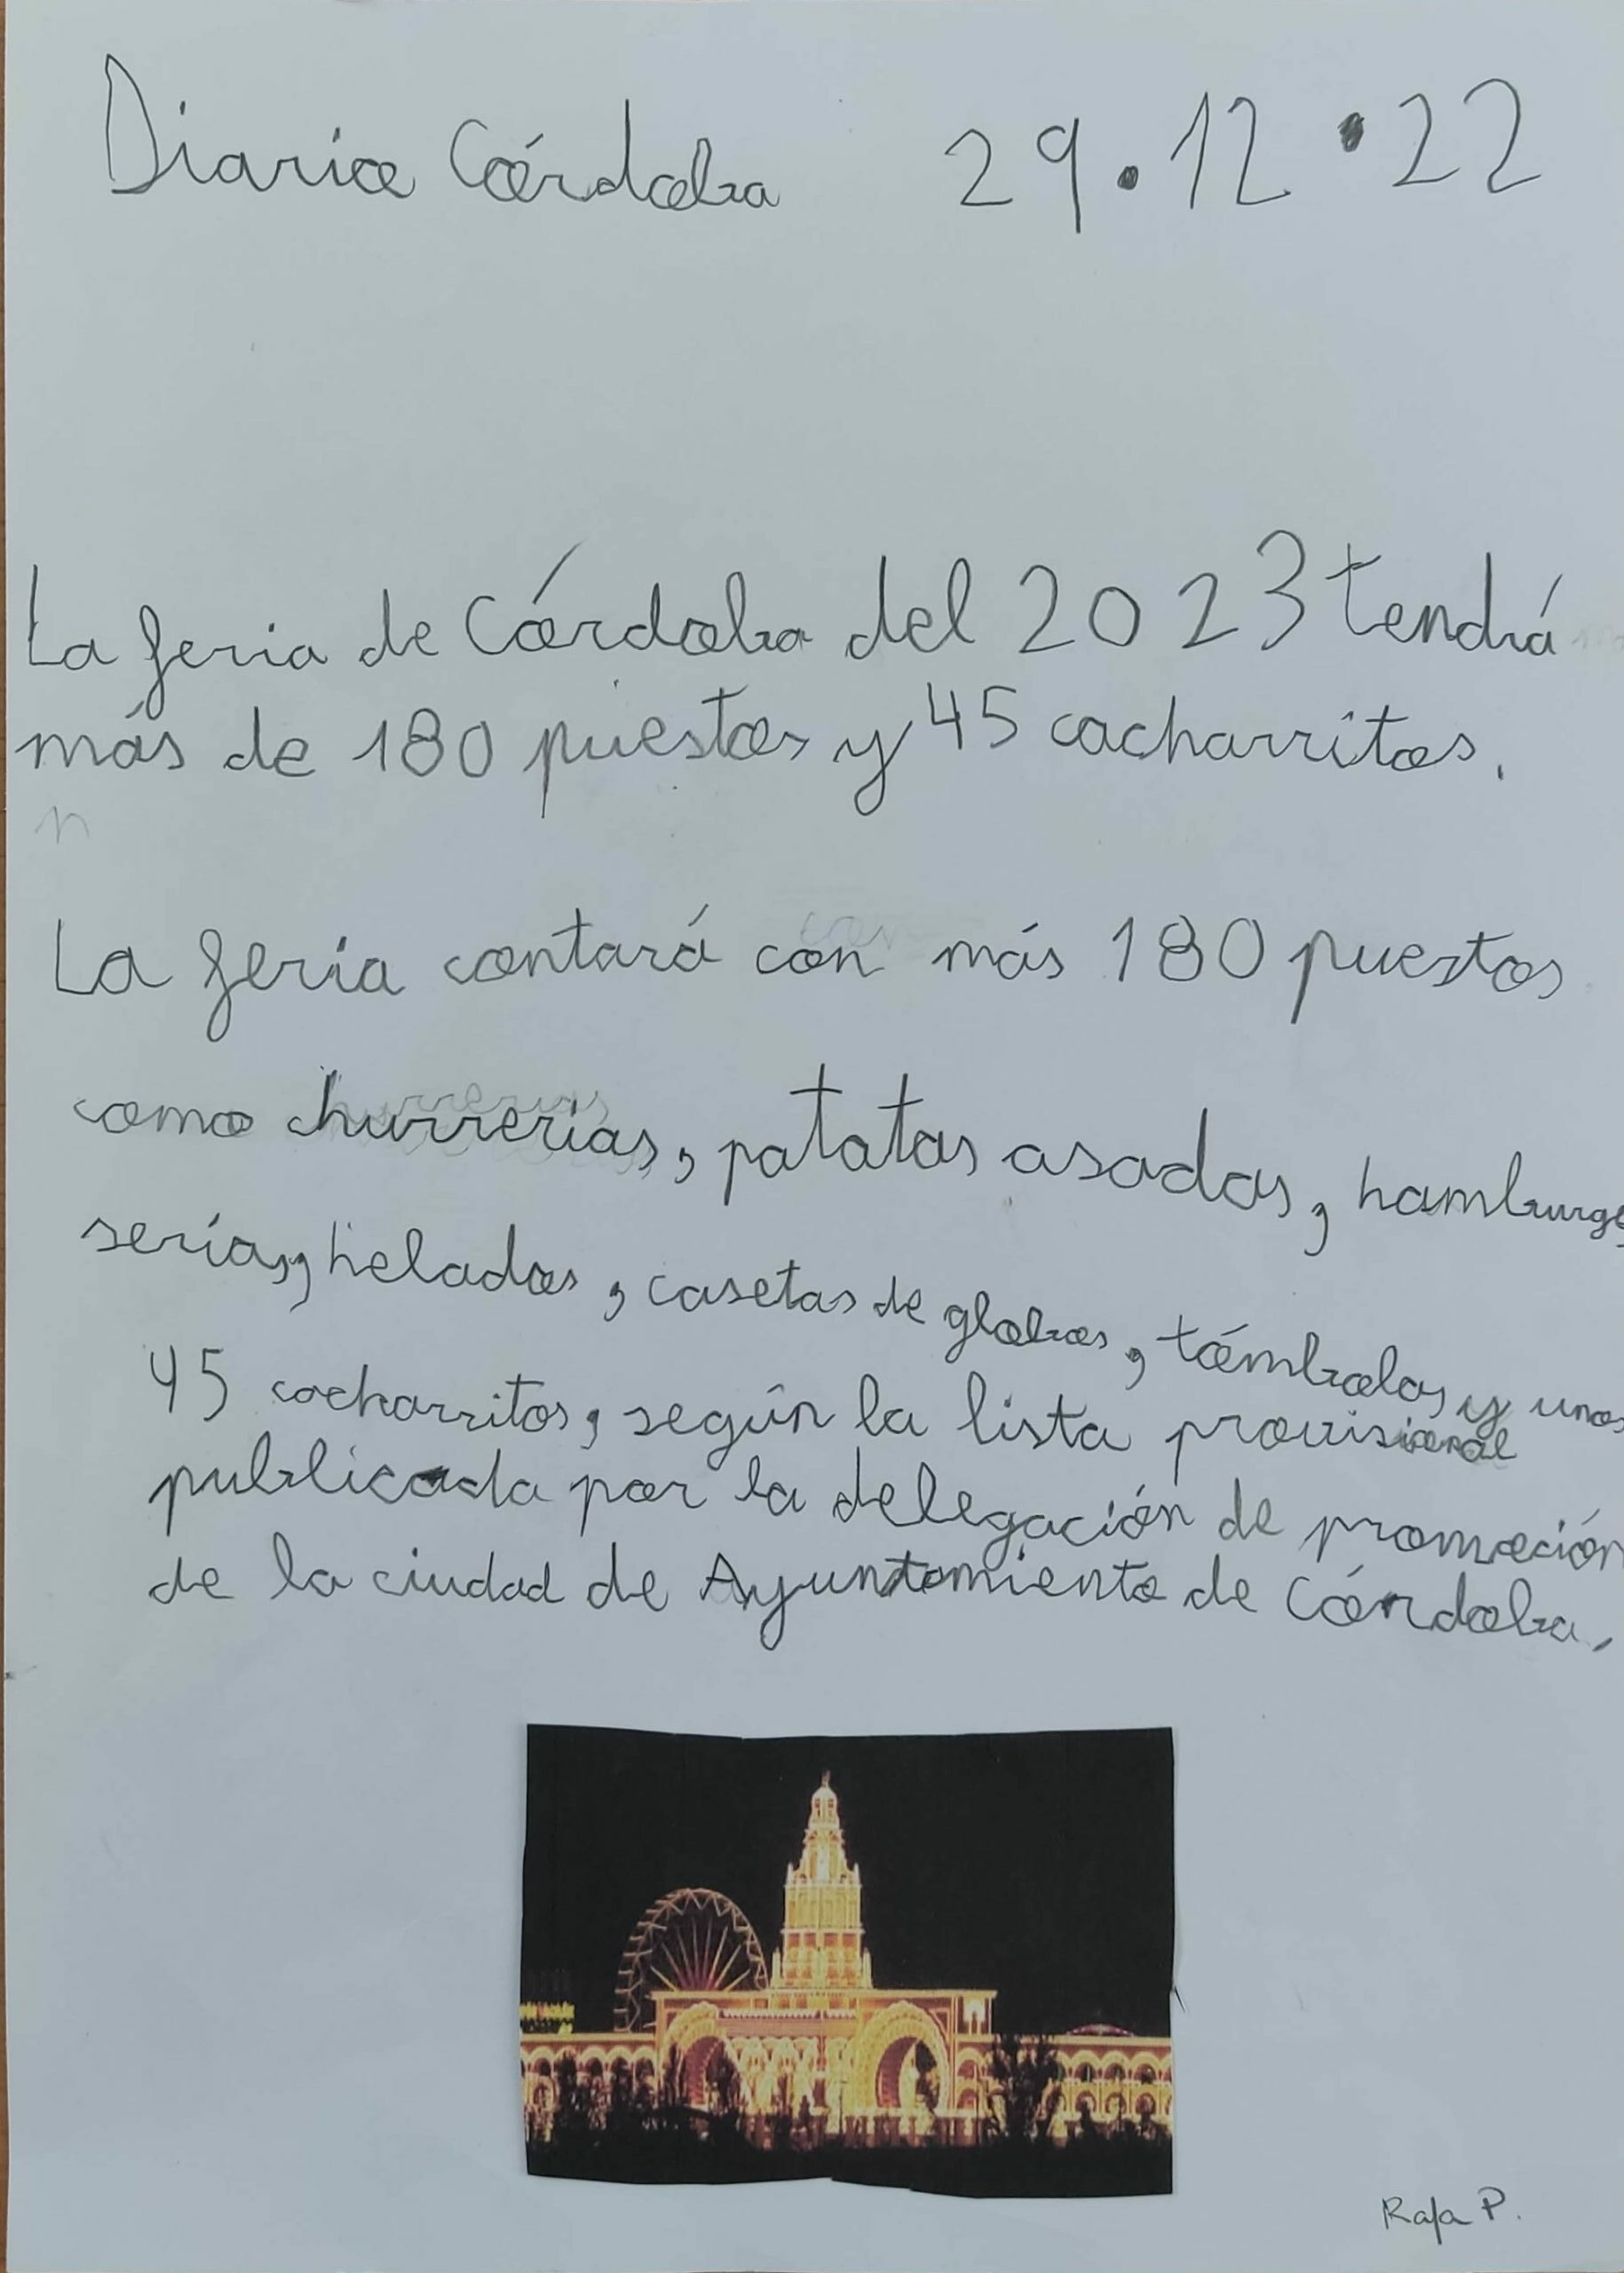 Diario Córdoba 29.12.22
La feria de Córdoba del 2023 tendrá
más de 180 puestos y 45 cacharritos.
n
La feria contará con más 180 puestos
como churrerías, patatas asadas, hamburge
serías, helados, casetas de globos, tómbolas y unos
45 cacharritos, según la lista provisional
publicada por la delegación de promoción
de la ciudad de Ayuntamiento de Córdoba.
Rafa P.